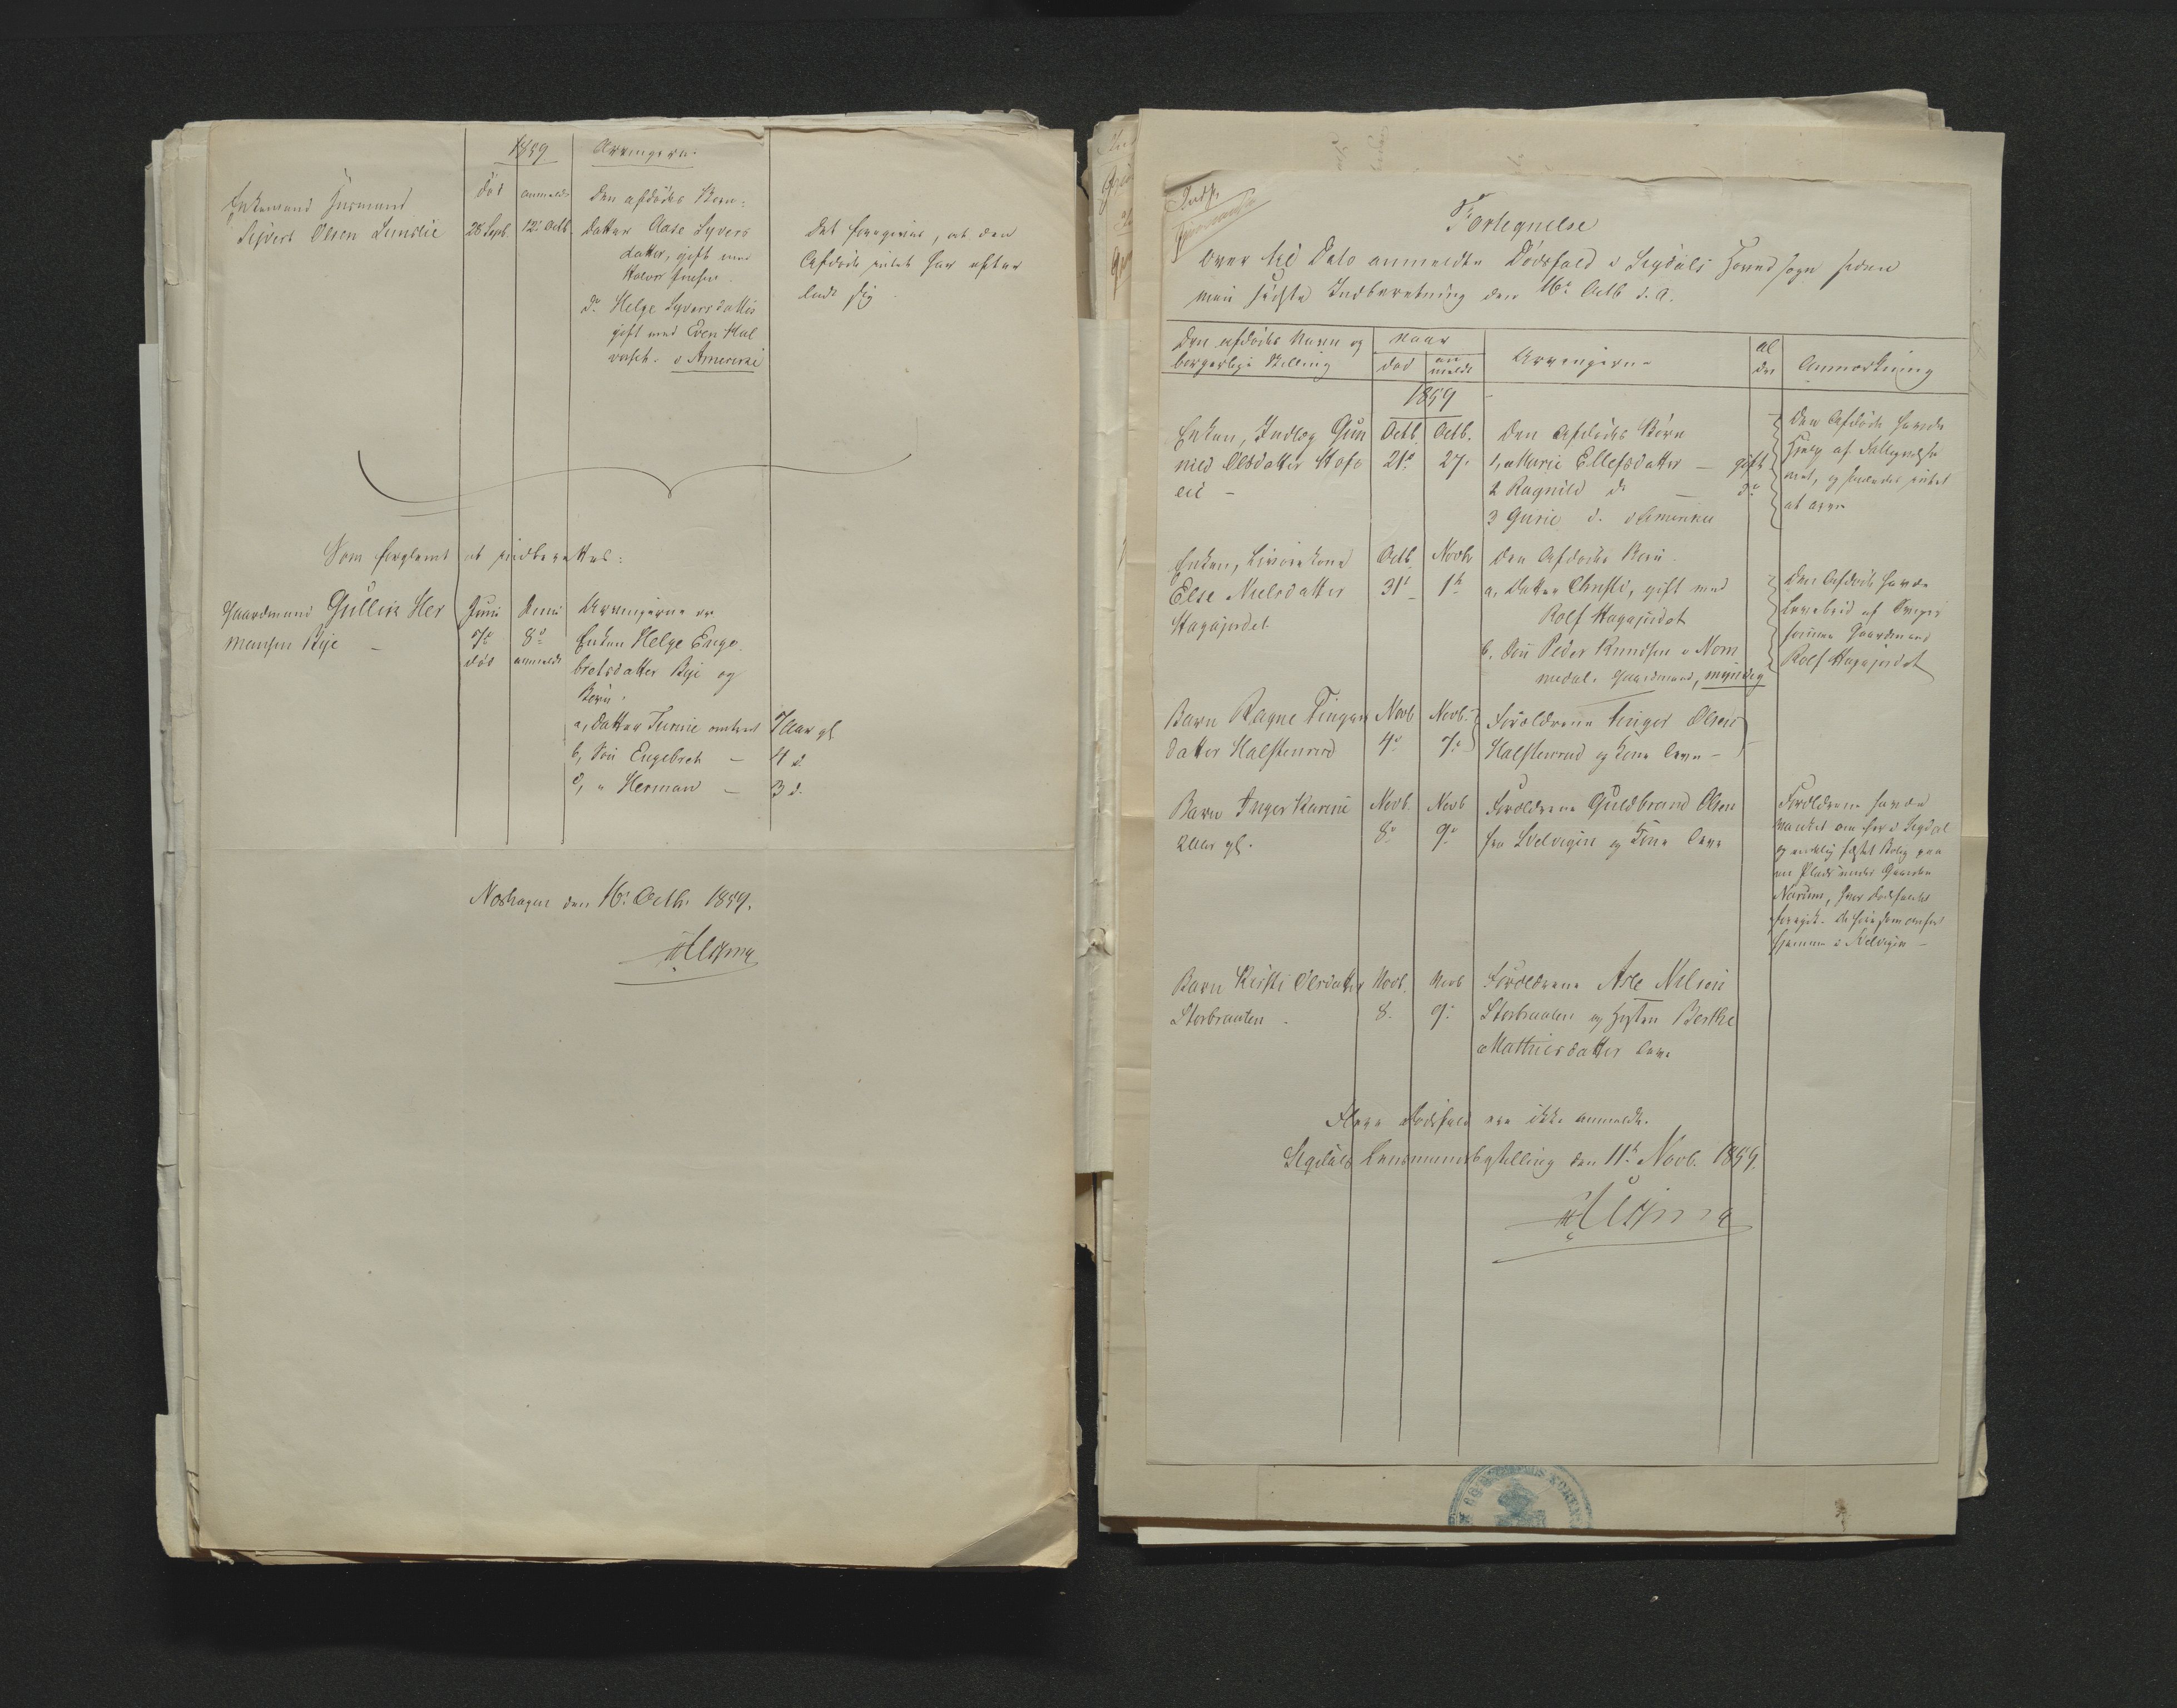 1859
Arvingerne
død anmeldt Den afdødes Børn:
Enkemand Huusmand
Syvert Olsen Lunslie 28 Septb. 12te Octb. datter Aase Syvers
datter, gift med
Halvor
do Helge Syversdatter
gift med Even Hal
vorsen i Amerika
Det foregives, at den
Afdøde intet har efter
ladt sig
Som forglemt at indberettes:
Gaardmand Gullik Her
mansen Bye –
Juni
7de
død
Juni
8de
anmeldt
Arvingerne er
Enken Helge Enge
bretsdatter Bye og
Børn:
a, datter Turine omtrent 7 Aar gl
b, Søn Engebret – 4 d.
c, " Herman – 3 d.
Noshagen den 16de Octb. 1859.
Indf.
Fortegnelse
over til Dato anmeldte Dødsfald i Sigdals Hovedsogn siden
min sidste Indberetning den 16de Octb d. A.
Den afdødes Navn og
borgerlige Stilling
Naar
død an
meldt
Arvingerne
Al
der
Anmærkning
1859
Enken, Indlog Gun
nild Olsdatter Hofs
eie –
Octb.
21de
Octb.
27.
Den Afdødes Børn
1, Marie Ellefsdatter – gift
2 Ragnild do – do
3 Gurie d. i Amerika
Den Afdøde havde
Hjelp af Fattigvæse
net, og havde intet
at arve
Enken, Livørekone
Else Nielsdatter
Hagajordet
Octb.
31te
Novbr
1te
Den Afdødes Børn
a, Datter Christi, gift med
Rolf Hagajordet
b. Søn Peder Knudsen i Num
medal. Gaardmand, myndig
Den Afdøde havde
Levebrød af Sviger
sønnen Gaardmand
Rolf Hagajordet
Barn Ragne Tinger
datter Halstenrud
Novb
4de
Novb.
7de
Forældrene Tinger Olsen
Halstenrud og Kone leve –
Barn Inger Karine
2 Aar gl.
Novb.
8de
Novb
9de
Forældrene Guldbrand Olsen
fra Svelvigen og Kone leve
Forældrene havde
vanket om her i Sigdal
og endelig fæstet Bolig paa
en Plads under Gaarden
Narum, hvor Dødsfaldet
foregik.
hjemme i Svelvigen –
Barn Kirsti Olsdatter
Storbraaten
Novb.
8.
Novb
9de
Forældrene Asle Nilsen
Storbraaten og Hustru Berthe
Mathiesdatter leve
Flere Dødsfald ere ikke anmeldte.
Sigdals Lensmandsbestilling den 11te Novb. 1859.